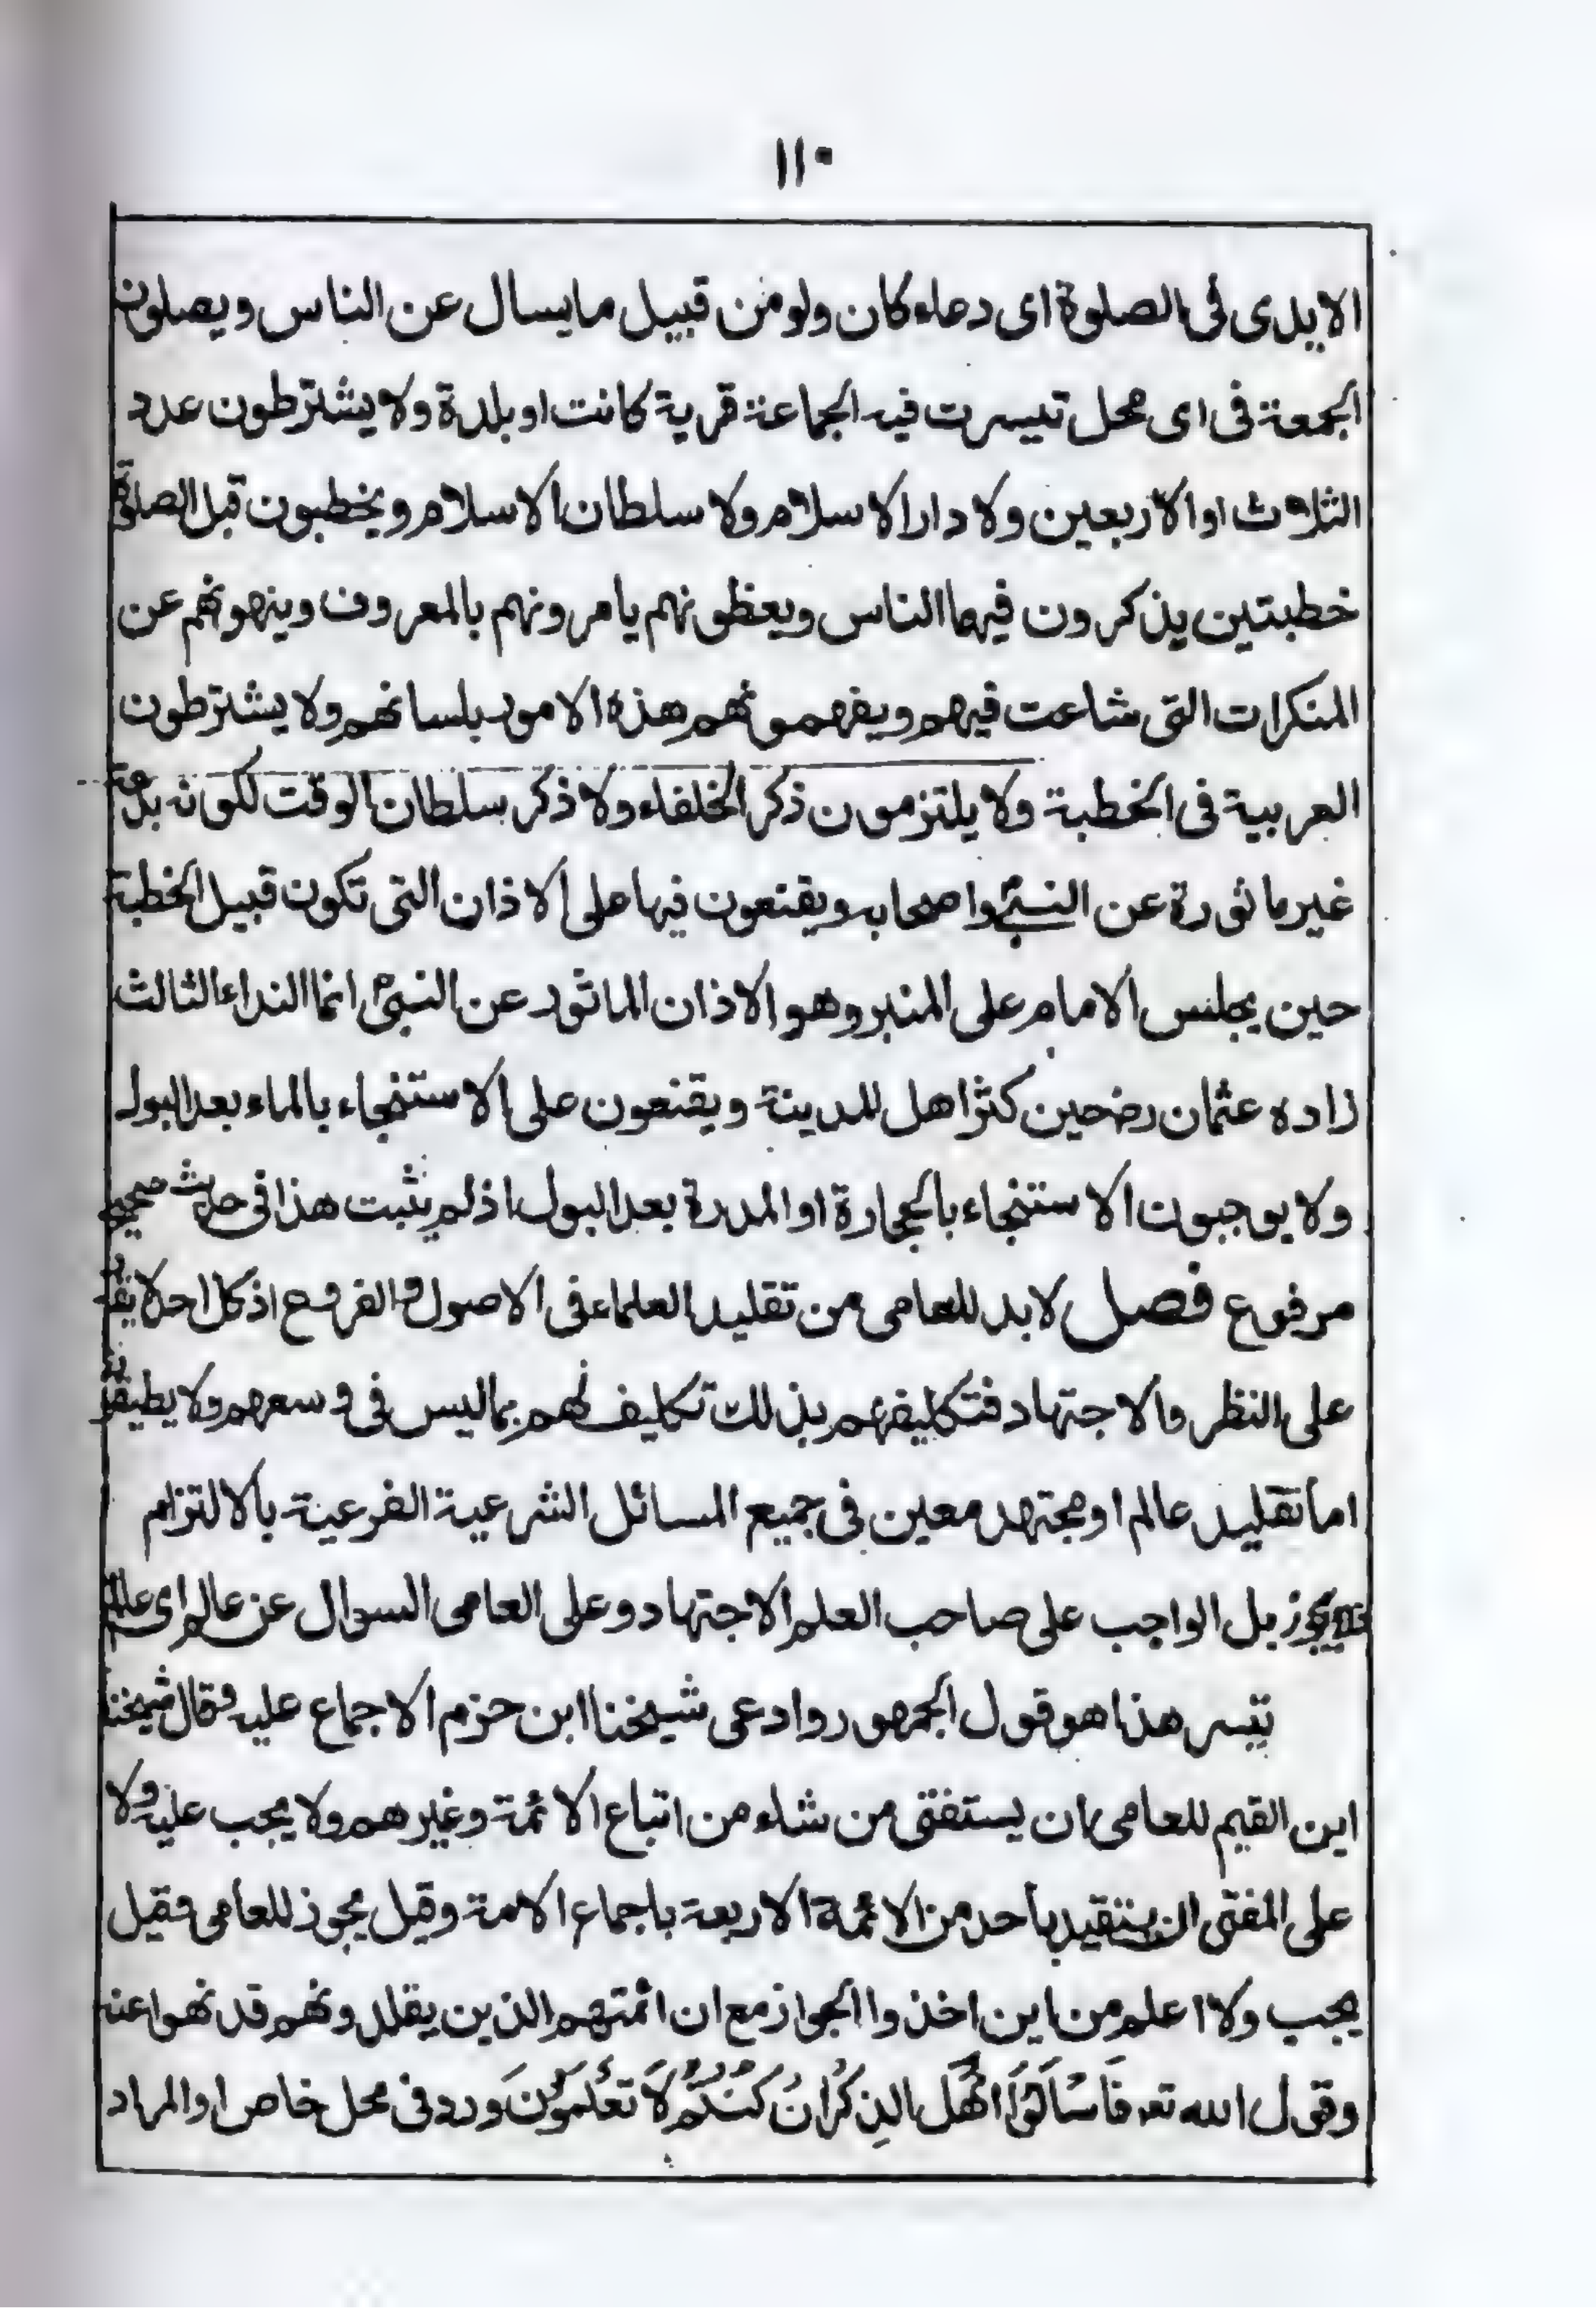 ١١٠
الايدى فى الصلوة اى دعاء كان ولو من قبيل ما يسال عن الناس ويصلون
الجمعة فى اى محل تيسرت فيه الجماعة قرية كانت او بلدة ولا يشترطون عدد
الثلاث او الاربعين ولا دار الاسلام ولا سلطان الاسلام ويخطبون قبل الصلوة
خطبتين يذكرون فيهما الناس ويعظونهم يامرونهم بالمعروف وينهونهم عن
المنكرات التى شاعت فيهم ويفهمونهم هذه الامور بلسانهم ولا يشترطون
العربية فى الخطبة ولا يلتزمون ذكر الخلفاء ولا ذكر سلطان الوقت لكونه بدعة
غير ماثورة عن النبىؐ واصحابه ويقنعون فيها على الاذان التى تكون قبيل الخطبة
حين يجلس الامام على المنبر وهو الاذان الماثور عن النبىؐ انما النداء الثالث
زاده عثمان رضحين كثر اهل المدينة ويقنعون على الاستنجاء بالماء بعد البول
ولا يوجبون الاستنجاء بالحجارة او المدرة بعد البول اذ لم يثبت هذا فى حديث صحيح
مرفوع فصل لابد للعامى من تقليد العلماء فى الاصول والفروع اذ كل احد لا يقدر
على النظر والاجتهاد فتكليفهم بذلك تكليف لهم بما ليس فى وسعهم ولا يطيقونه
اما تقليد عالم او مجتهد معين فى جميع المسائل الشرعية الفرعية بالالتزام
لا يجوز بل الواجب على صاحب العلم الاجتهاد وعلى العامى السوال عن عالم اى عالم
تيسر هذا هو قول الجمهور وادعى شيخنا ابن حزم الاجماع عليه وقال شيخنا
ابن القيم للعامى ان يستفتى من شاء من اتباع الائمة وغيرهم ولا يجب عليه ولا
على المفتى ان يتقيد باحد من الائمة الاربعة باجماع الامة وقيل يجوز للعامى وقيل
يجب ولا اعلم من اين اخذوا الجواز مع ان ائمتهم الذين يقلدونهم قد نهوا عنه
وقول الله تعـ فَاسْأَلُوْا اَهْلَ الذِكْرِ اِنْ كُنْتُمْ لَا تَعْلَمُوْنَ ورد فى محل خاص او المراد